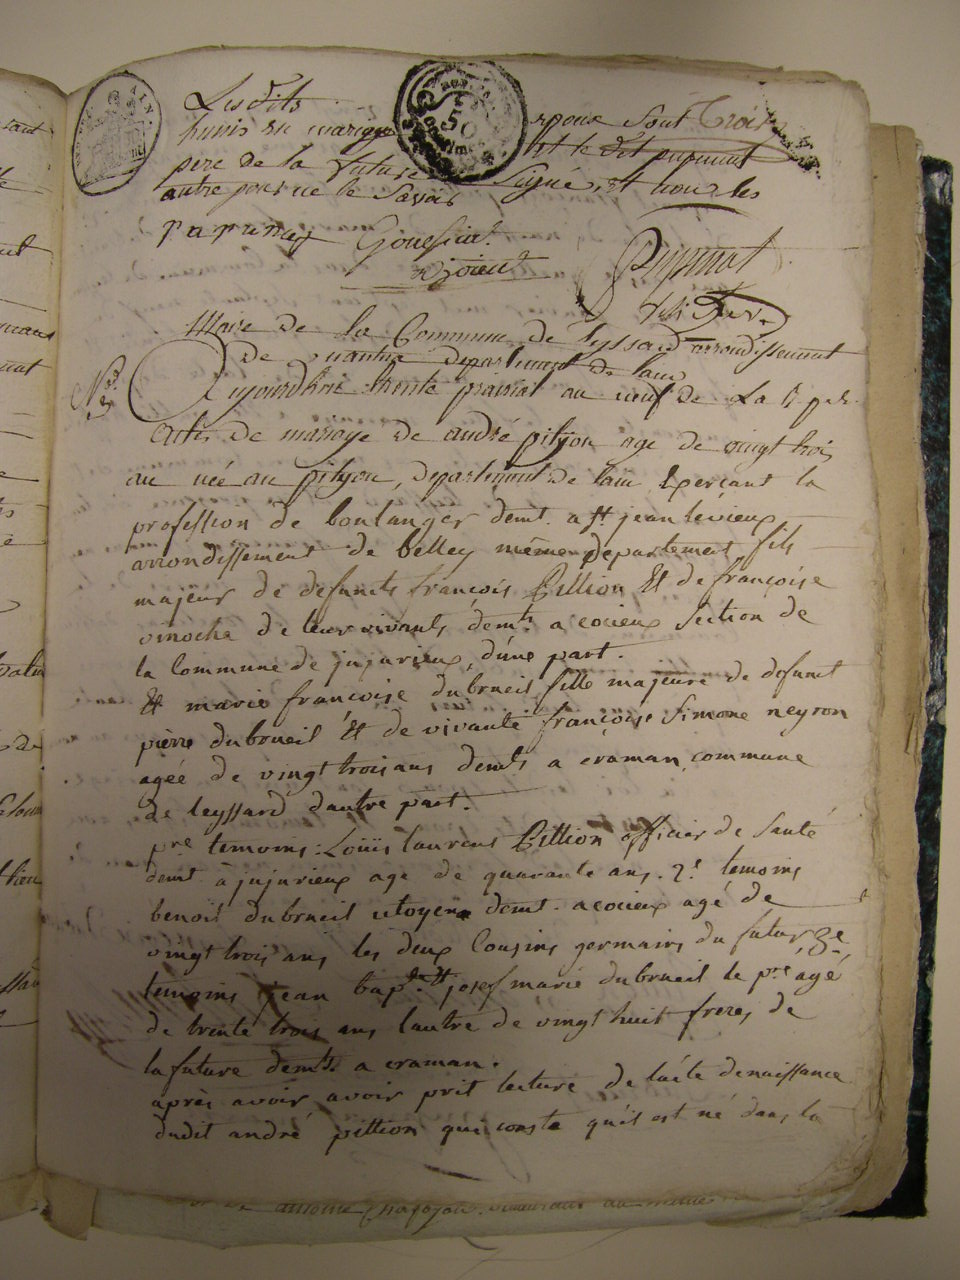 Lesdits époux sont Trois
hunis en mariage et le dit pupunat
pere de la future Signé, et non les
autre pour ne le Savoir
papunat Goueffier
Maire de la Commune de Leyssard arrondissement
de nantua departement de lain
N.o 3
Aujourdhui trente prairial an neuf de La
Acte de mariage de andré pityon age de vingt trois
an née au pityon, departement de lain Exerçant la
profession de boulanger demt. a St jean levieux
arrondissement de belley même departement, fils
majeur de defunts françois Pittion Et de françoise
vinoche de leur vivants demts a cocieux Section de
la Commune de jujurieux, dúne part.
Et marie francoise dubrueil fille majeure de defunt
pièrre dubrueil Et de vivante françoise Simone neyron
agéé de vingt trois ans demts a craman, commune
de leyssard dautre part.
pre temoins: Louis laurens Pittion officier de Santé
demt. à jujurieux age de quarante ans. 2.e temoins
benoit dubrueil citoyen demt. a cocieux agé de
vingt trois ans les deux Cousins germains du futur, 3e
temoins jean bapte Et josef marie dubrueil le pre agé
de trente trois ans lautre de vingt huit freres de
la future demts a craman.
après avoir avoir prit lecture de lácte denaissance
dudit andré pittion qui conste qu'il est né dans la
antoine